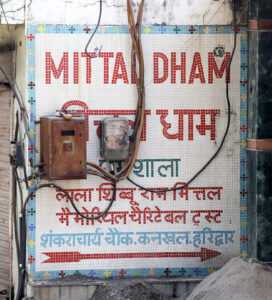 MITTAL DHAM
धाम
शाला
लाला शिब्बू राम मित्तल
मैमोरियल चैरिटेबल ट्रस्ट
शंकराचार्य चौक. कनखल. हरिद्वार